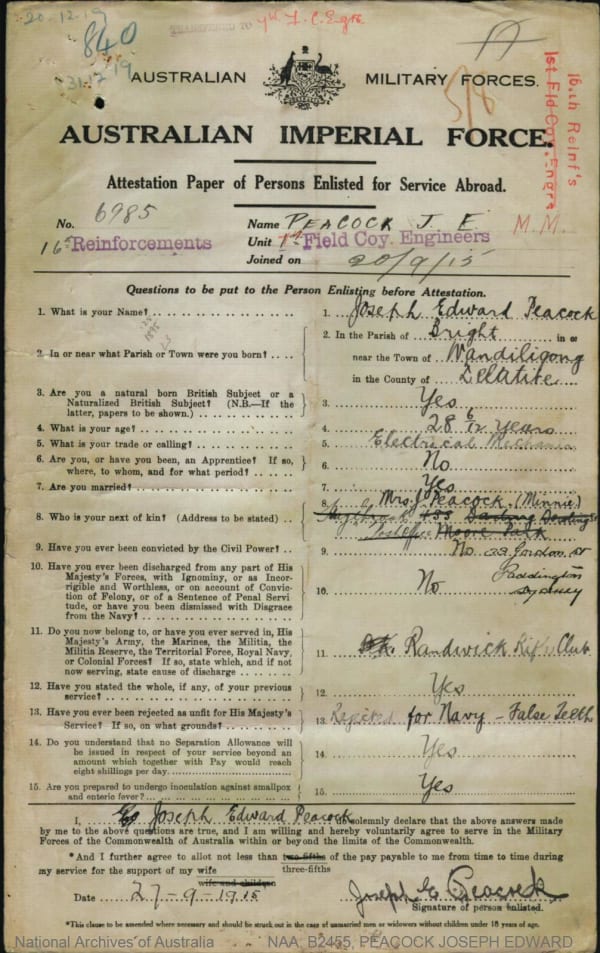 20.12.19
TRANSFERRED TO
840
31.12.19
AUSTRALIAN MILITARY FORCES.
16th Reinf's
1st Fld Coy. Engrs
AUSTRALIAN IMPERIAL FORCE.
Attestation Paper of Persons Enlisted for Service Abroad.
No. 6985
Name PEACOCK J. E.
M.M.
16th Reinforcements
Unit 1st Field Coy. Engineers
Joined on 20/9/15
Questions to be put to the Person Enlisting before Attestation.
1. What is your Name?
1. Joseph Edward Peacock
2. In or near what Parish or Town were you born?
2. In the Parish of Bright in or
near the Town of Wandiligong
in the County of Delatite
3. Are you a natural born British Subject or a
Naturalized British Subject? (N.B.—If the
latter, papers to be shown.)
3. Yes
4. What is your age?
4. 28 6/12 Years
5. What is your trade or calling?
5. Electrical Mechanic
6. Are you, or have you been, an Apprentice? If so,
where, to whom, and for what period?
6. No
7. Are you married?
7. Yes
8. Who is your next of kin? (Address to be stated)
8. Mrs J Peacock (Minnie)
Moore Park
33 Gordon St
Paddington
Sydney
9. Have you ever been convicted by the Civil Power?
9. No
10. Have you ever been discharged from any part of His
Majesty's Forces, with Ignominy, or as Incor-
rigible and Worthless, or on account of Convic-
tion of Felony, or of a Sentence of Penal Servi
tude, or have you been dismissed with Disgrace
from the Navy?
10. No
11. Do you now belong to, or have you ever served in, His
Majesty's Army, the Marines, the Militia, the
Militia Reserve, the Territorial Force, Royal Navy,
or Colonial Forces? If so, state which, and if not
now serving, state cause of discharge
11. Randwick Rifle Club
12. Have you stated the whole, if any, of your previous
service?
12. Yes
13. Have you ever been rejected as unfit for His Majesty's
Service? If so, on what grounds?
13. Rejected for Navy - False Teeth
14. Do you understand that no Separation Allowance will
be issued in respect of your service beyond an
amount which together with Pay would reach
eight shillings per day.
14. Yes
15. Are you prepared to undergo inoculation against smallpox
and enteric fever?
15. Yes
I, Joseph Edward Peacock solemnly declare that the above answers made
by me to the above questions are true, and I am willing and hereby voluntarily agree to serve in the Military
Forces of the Commonwealth of Australia within or beyond the limits of the Commonwealth.
*And I further agree to allot not less than two-fifths of the pay payable to me from time to time during
three-fifths
my service for the support of my wife
wife and children
Date 27-9-1915
Joseph E Peacock
Signature of person enlisted.
*This clause to be amended where necessary and should be struck out in the case of unmarried men or widowers without children under 18 years of age.
National Archives of Australia NAA: B2455, PEACOCK JOSEPH EDWARD